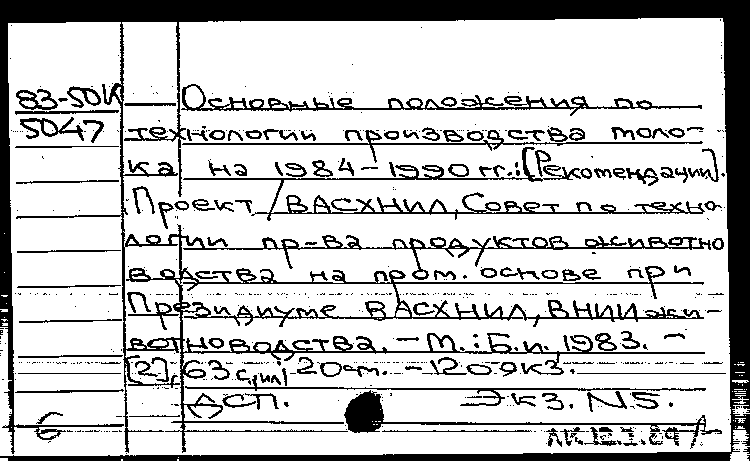 83-50К Основные положения по
5047 технологии производства моло-
ка на 1984-1990 гг.: [Рекомендации].
Проект / ВАСХНИЛ, Совет по техно
логии пр-ва продуктов животно
водства на пром. основе при
Президиуме ВАСХНИЛ, ВНИИ жи-
вотноводства. - М.: Б.и., 1983. -
[2], 63 с., ил; 20 см. - 120 экз.
ДСП. Экз. N5.
6 ЛК 12.I.89